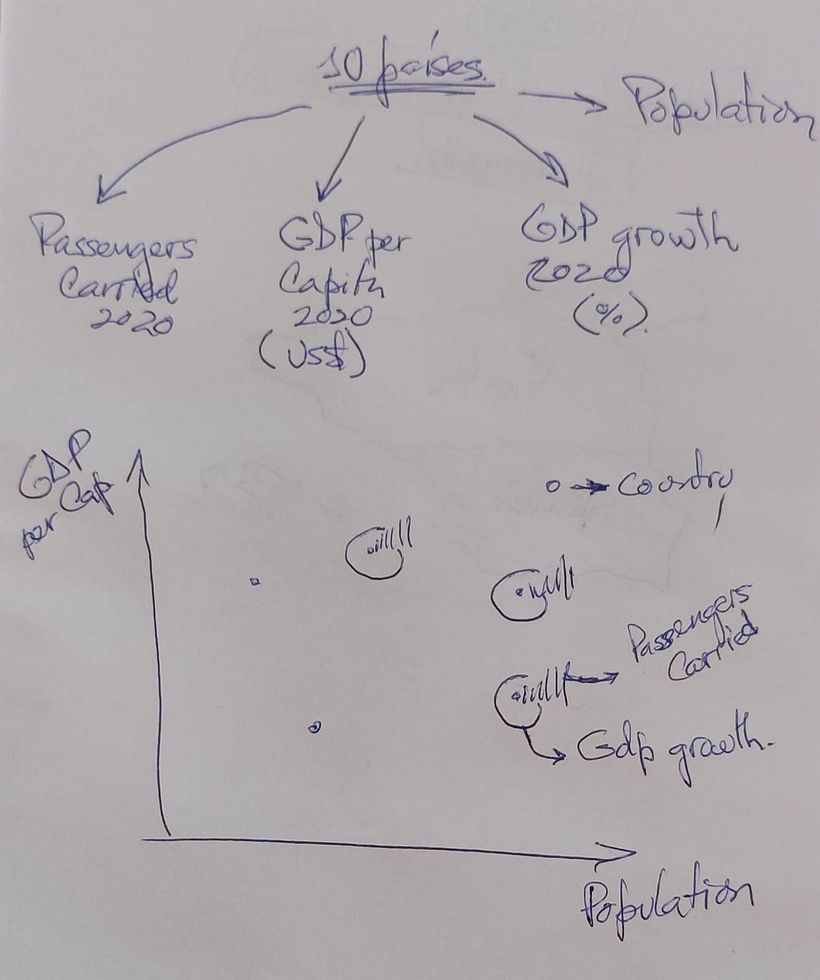 10 países.
Population
Passengers
Carried
2020
GDP per
Capita
2020
(US$)
GDP growth
2020
(%).
GDP
per Cap
Country
Passengers
Carried
Gdp growth.
Population